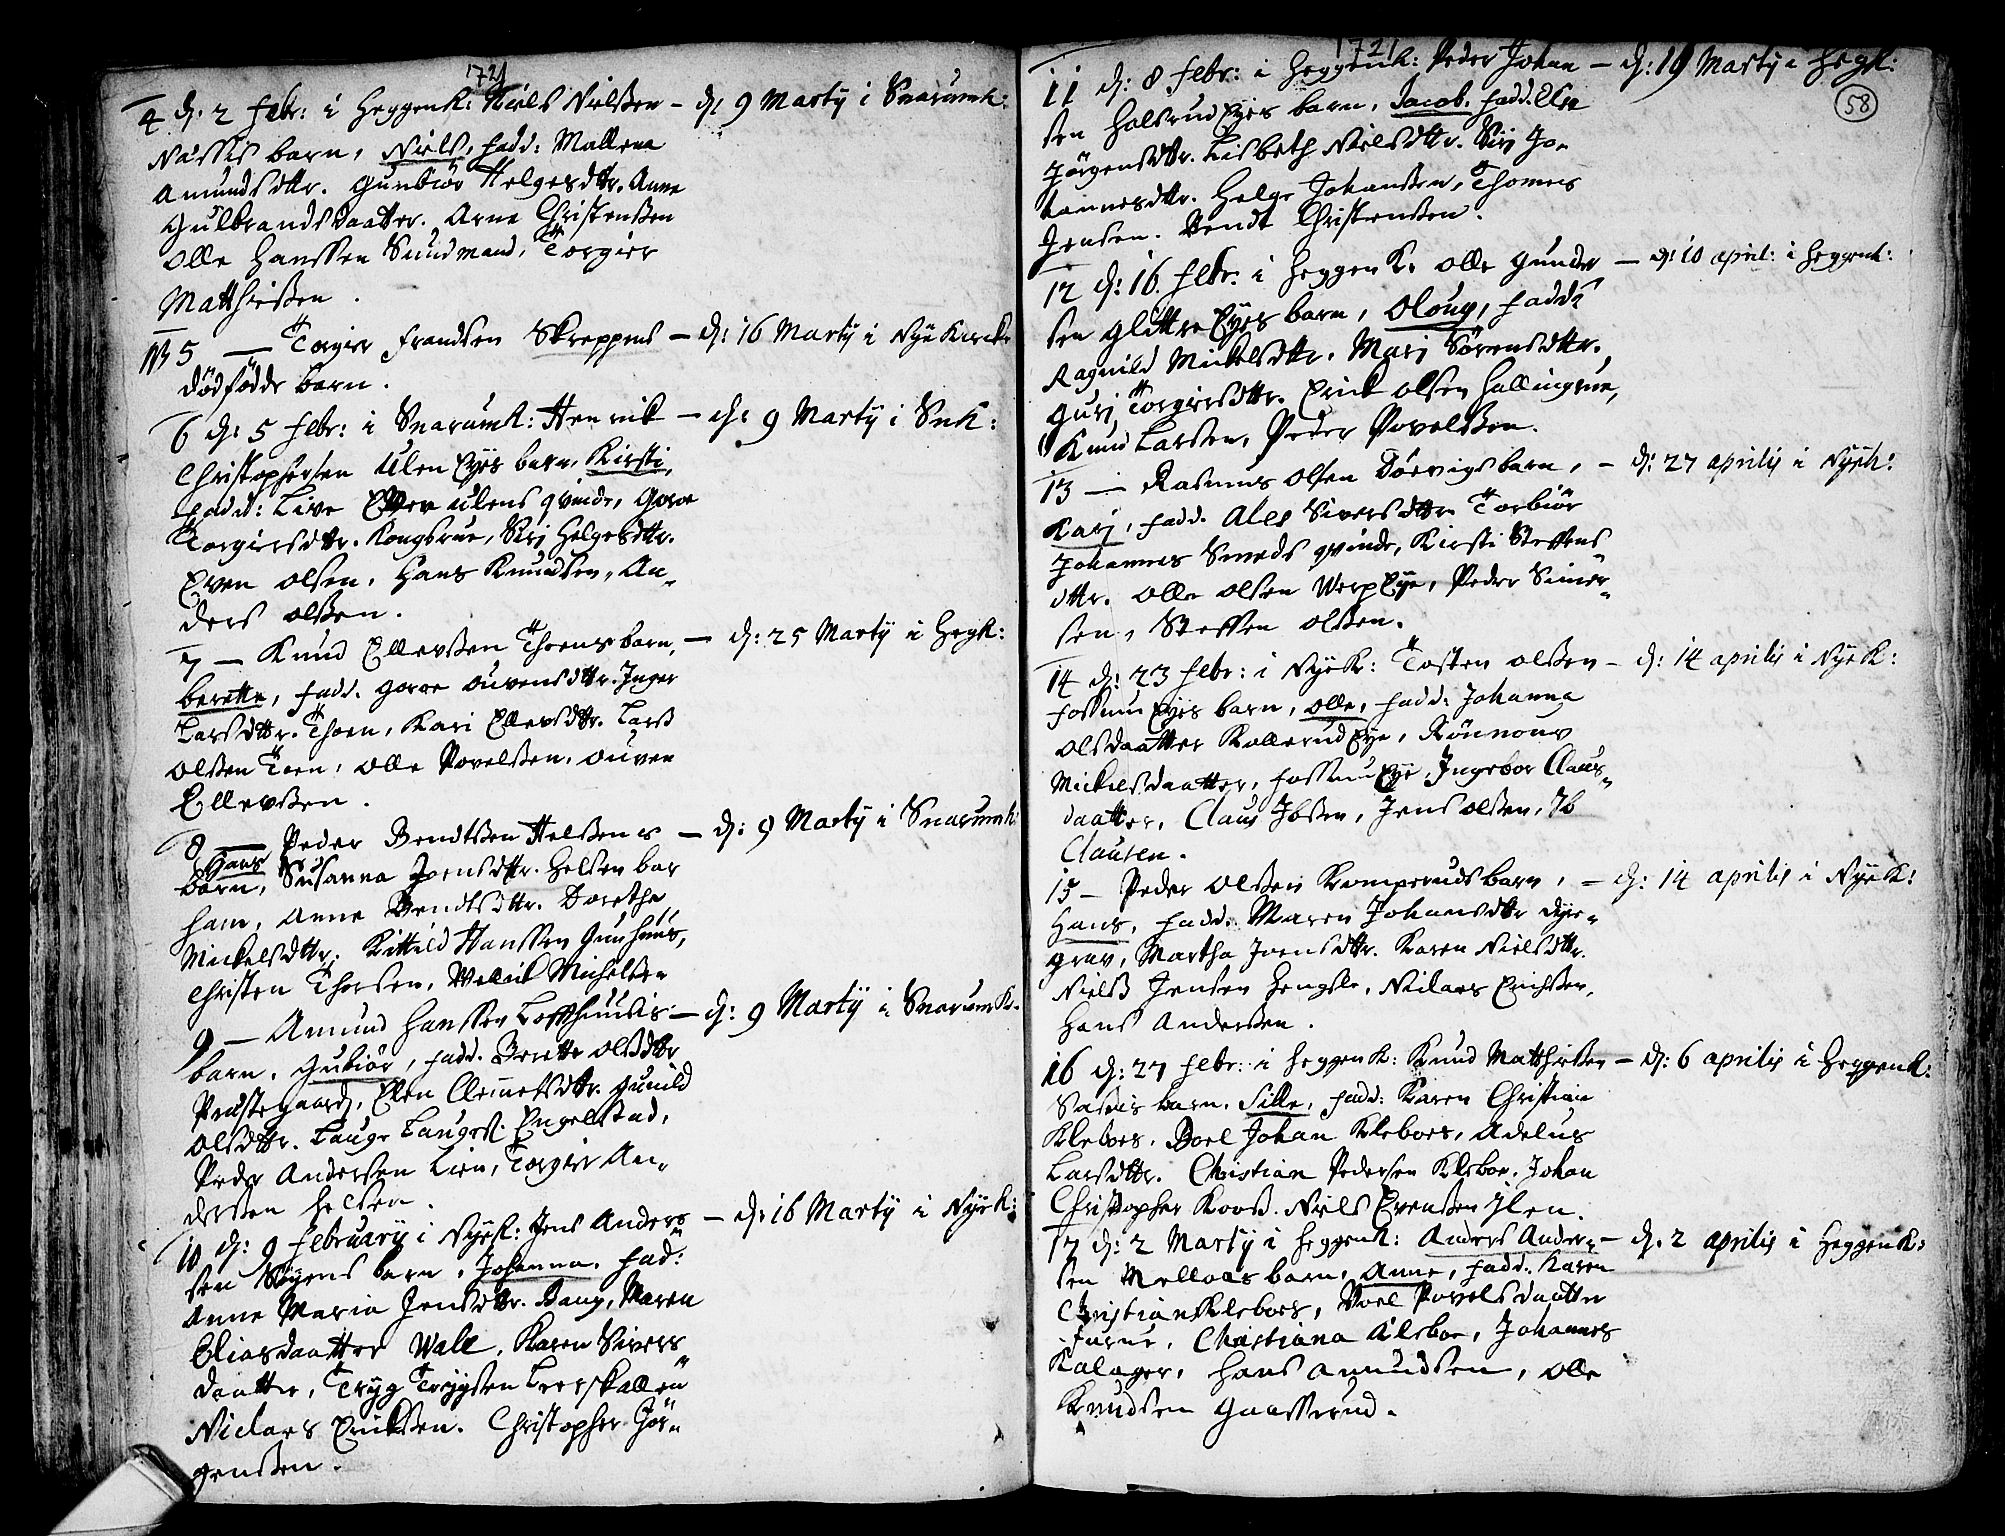 1721
4 d: 2 Febr: i Heggenk: Niels Nielsen – d: 9 Martÿ i Snarumk:
barn, Niels, fadd: Mallene
Amundsdttr. Gunbiør Helgesdttr. Anne
Gulbrandsdaatter. Arne Christensen
Olle Hanssen Sundmand, Torgier
Matthiessen.
5 — Torgier Frandsen Skreppens – d: 16 Martÿ i Nÿekircke
dødfødde barn.
6 d: 5 Febr: i Snarumk: Henrich – d: 9 Martÿ i Snk:
Christophersen Ulen Eyes barn, Kirsti,
fadd: Live Ulens qvinde, Goroe
Torgiersdttr. Kongsrue, Siri Helgesdttr.
Even Olsen, Hans Knudsen, An-
ders Olsen.
7 — Knud Ellevsen Thoens barn, – d: 25 Martÿ i Hegk:
Berette, fadd. Goroe Ouvensdttr. Inger
Larsdttr. Thoen, Kari Ellevsdttr. Lars
Olsen Toen, Olle Povelsen, Ouven
Ellevsen.
8 — Peder Bendtsen Helsens – d: 9 Martÿ i Snarumk:
Hans
barn, Susanna Joensdttr. Helsen bar
ham, Anne Bendtsdttr. Dorethe
Mickelsdttr. Kittild Hanssen Gunhuus,
Christen Thorsen, Michelsen
9 — Amund Hanssen Loffthuusis – d: 9 Martÿ i Snarumk.
barn, Gubiør, fadd. Berette Olsdttr
Prestegaard, Elen Clemetsdttr. Gunild
Olsdttr. Lauge Laugesen Engelstad,
Peder Andersen Lien, Torgier An-
dersen Helsen.
10 d: 9 Februarÿ i Nÿek: Jens Anders – d: 16 Martÿ i Nÿek:
sen barn, Johanna, fad:
Anne Maria Jensdttr. Maren
Eliasdaatter Wale, Karen Sivers
daatter, Tryg Trygsen Leerskallen
Niclaes Ericksen. Christopher Jør-
gensen.
1721
58
11 d: 8 Febr: i Heggenk: Peder Johan – d: 19 Martÿ i Hegk:
sen Halsrud Eyes barn, Jacob, fadd. Else
Jørgensdttr. Lisbeth Nielsdttr. Siri Jo-
hannesdttr. Helge Johansen, Thomes
Jensen. Bendt Christensen.
12 d: 16. Febr. i Heggenk: Olle Gunder – d: 10 april: i Heggenk:
sen Glittre Eyes barn, Oloug, fadd:
Ragnild Mickelsdttr. Mari Sørensdttr.
Guri Torgiersdttr. Erick Olsen Hallingrue,
Knud Larsen, Peder Povelsen.
13 — Rasmus Olsen Dørvigs barn, – d: 27 aprilis i Nÿek:
Kari, fadd. Ales Siversdttr. Torbiør
Johannes Smeds qvinde, Kirsti Steffens
dttr. Olle Olsen Werp Eye, Peder Simen-
sen, Steffen Olsen.
14 d: 23 Febr: i Nÿek: Tosten Olsen – d: 14 aprilis i Nÿek:
Fossum Eyes barn, Olle, fadd: Johanna
Olsdaatter Kollerud Eye, Rønnouv
Mickelsdaatter, Fossum Eye, Ingebor Claus-
daatter, Claus Ibsen, Jens Olsen, Ib
Clausen.
15 — Peder Olsen Kamperuds barn, – d: 14 aprilis i Nÿek:
Hans, fadd. Maren Johansdttr Dye-
grav, Martha Joensdttr. Karen Nielsdttr.
Niels Jensen Hengsle, Niclaes Erichsen,
Hans Andersen.
16 d: 27 Febr: i Heggenk: Knud Matthiesen – d: 6 aprilis i Heggenk:
barn, Sille, fadd: Karen Christian
Kleboes, Boel Johan Kleboes, Adelus
Larsdttr. Christian Pedersen Kleboe, Johan
Christopher Koos. Niels Evensen Ilen.
17 d: 2 Martÿ i Heggenk: Anders Ander- – d: 2 aprilis i Heggenk:
sen Melloas barn, Anne, fadd: Karen
Christian Kleboes, Boel Povelsdaatter
Furue, Christiana Kleboe, Johannes
Kalager, Hans Amundsen, Olle
Knudsen Gaasserud.